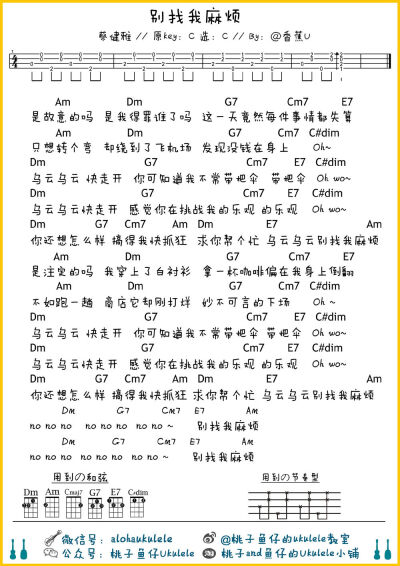 别找我麻烦
蔡健雅 // 原key: C 选: C // By: @香蕉U
Am Dm G7 Cm7 E7
是故意的吗 是我得罪谁了吗 这一天竟然每件事情都失算
Am Dm G7 Cm7 C#dim
只想转个弯 却绕到了飞机场 发现没钱在身上 Oh~
Dm G7 Cm7 C#dim
乌云乌云快走开 你可知道我不常带把伞 带把伞 Oh wo~
Dm G7 Cm7 E7 C#dim
乌云乌云快走开 感觉你在挑战我的乐观 的乐观 Oh wo~
Dm G7 Cm7 Am Dm E7 Am
你还想怎么样 搞得我快抓狂 求你帮个忙 乌云乌云别找我麻烦
Am Dm G7 Cm7 E7
是注定的吗 我穿上了白衬衫 拿一杯咖啡偏在我身上倒翻
Am Dm G7 Cm7 C#dim
不如跑一趟 商店它却刚打烊 妙不可言的下场 Oh ~
Dm G7 Cm7 E7 C#dim
乌云乌云快走开 你可知道我不常带把伞 带把伞 Oh wo~
Dm G7 Cm7 E7 C#dim
乌云乌云快走开 感觉你在挑战我的乐观 的乐观 Oh wo~
Dm G7 Cm7 Am Dm E7 Am
你还想怎么样 搞得我快抓狂 求你帮个忙 乌云乌云别找我麻烦
Dm G7 Cm7 E7 Am
no no no no no no no~ 别找我麻烦
Dm G7 Cm7 E7 Am
no no no no no no no~ 别找我麻烦
用到の和弦 用到の节奏型
Dm Am Cmaj7 G7 E7 C#dim
微信号: alohaukulele @桃子鱼仔的ukulele教室
公众号: 桃子鱼仔Ukulele 桃子and鱼仔的Ukulele小铺